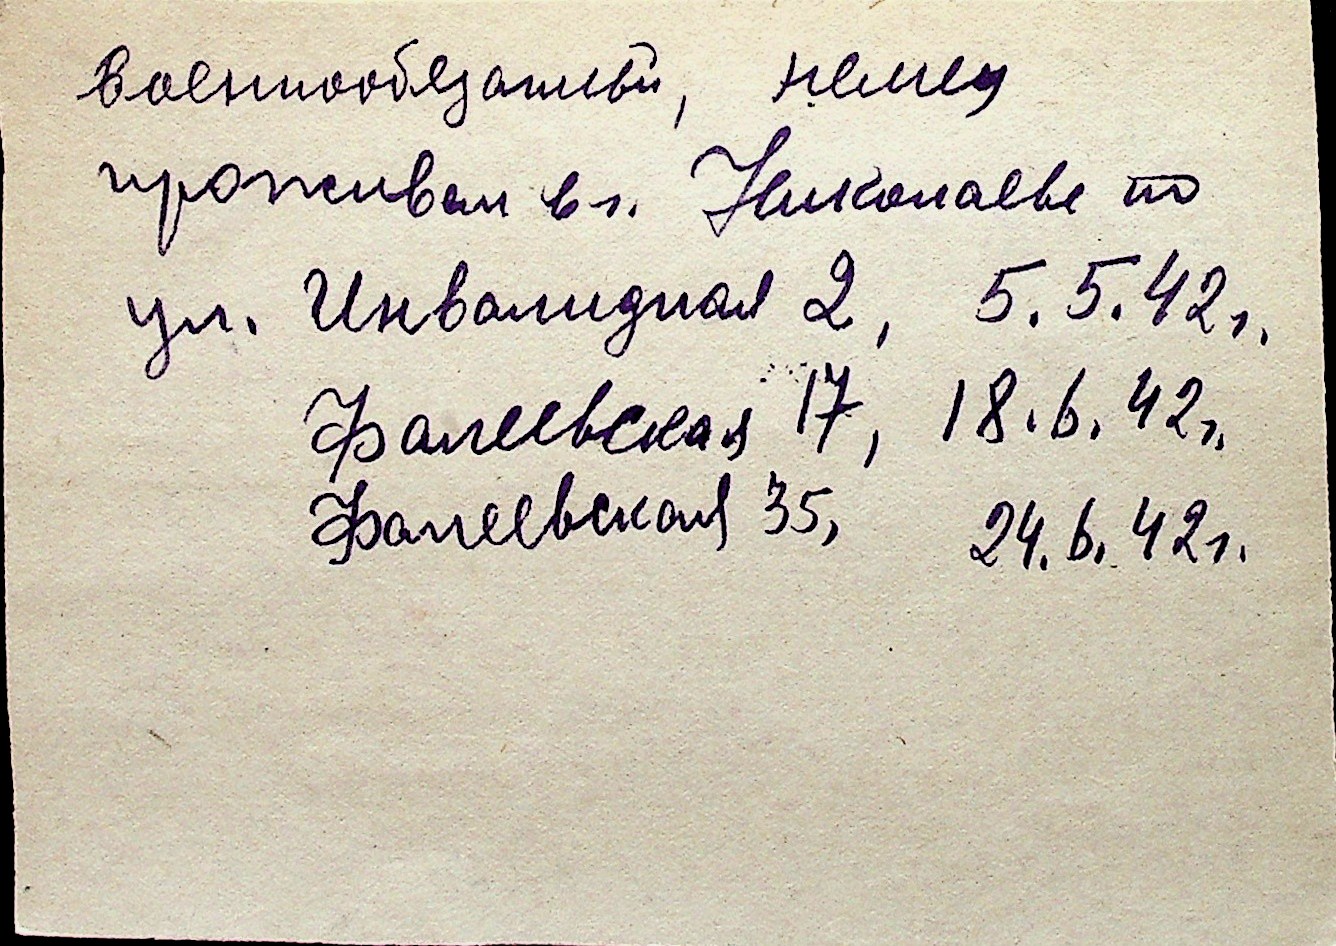 Военнообязаный, немец
проживал в г. Николаеве по
ул. Инвалидная 2, 5.5.42г.
Фалеевская 17, 18.6.42г.
Фалеевская 35, 24.6.42г.